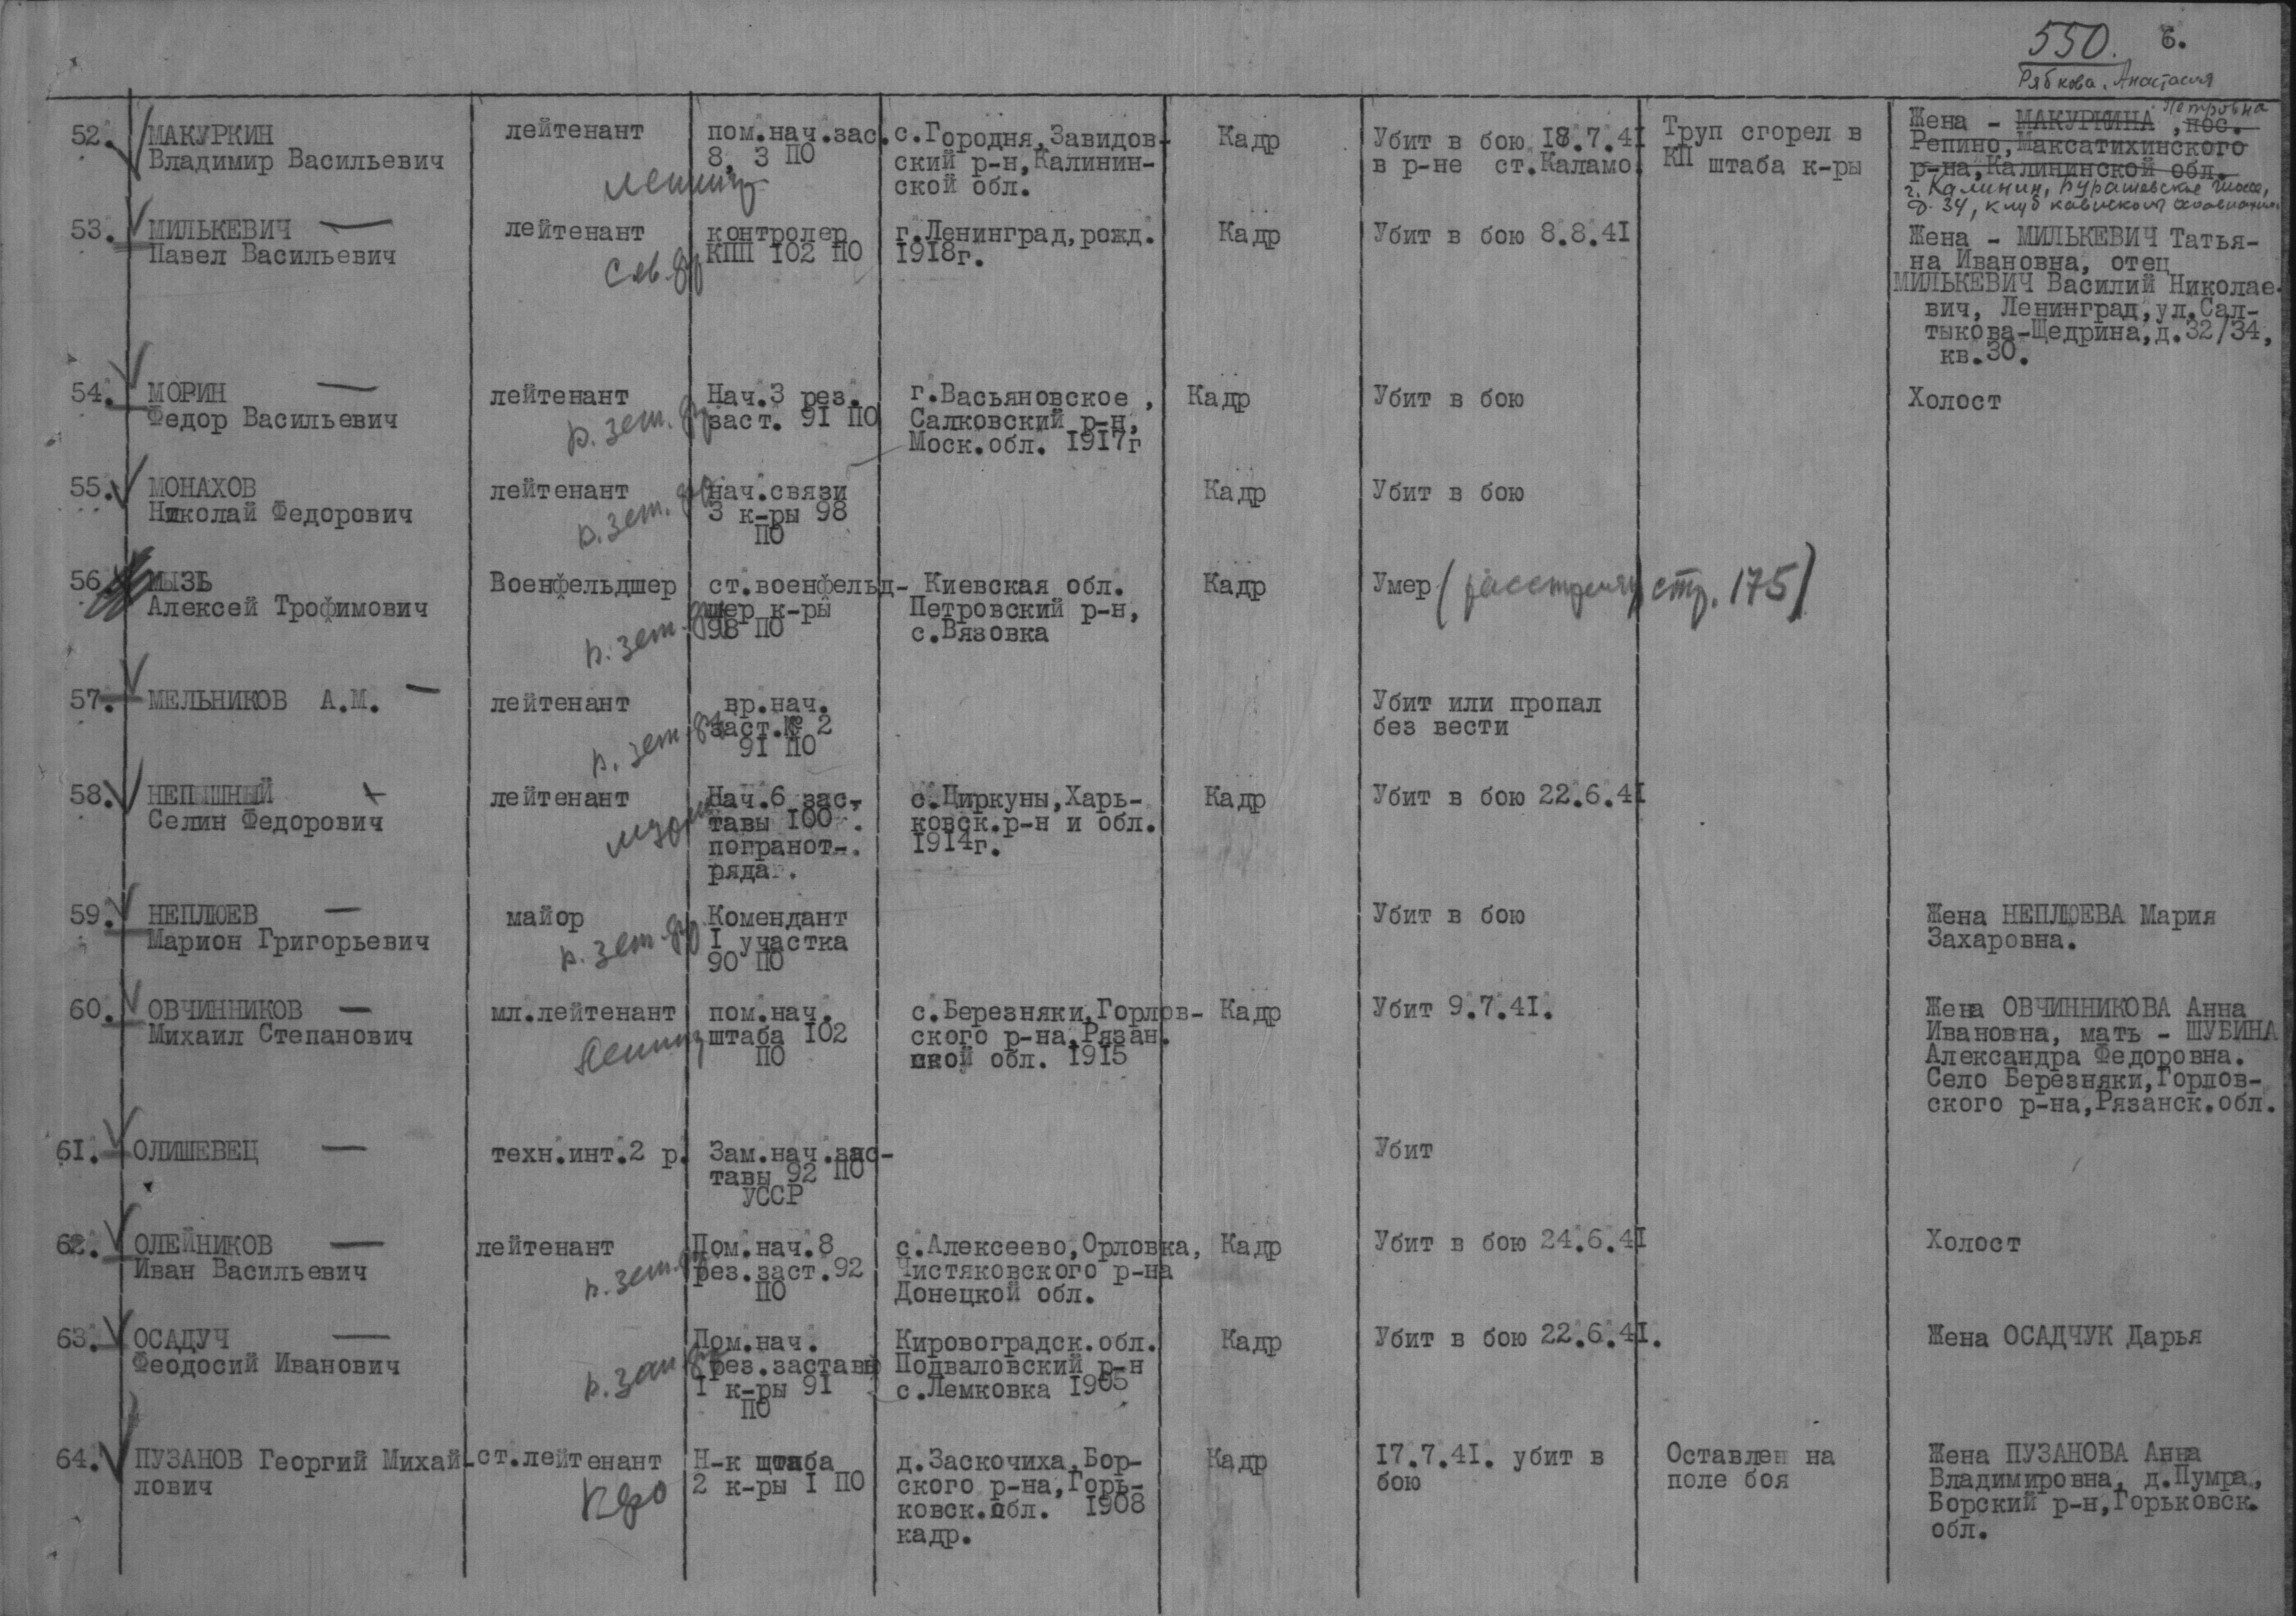 550. 6.
Рябкова, Анастасия
Петровна
52. МАКУРКИН
Владимир Васильевич
лейтенант
пом.нач.зас.
8, 3 ПО
с.Городня,Завидов-
ский р-н,Калинин-
ской обл.
Кадр
Убит в бою 18.7.41
в р-не ст.Каламо
Труп сгорел в
КП штаба к-ры
Жена - МАКУРКИНА ,пос.
Репино,Максатихинского
р-на,Калининской обл.
г. Калинин, Бурашевское шоссе,
д. 34, клуб
53. МИЛЬКЕВИЧ —
Павел Васильевич
лейтенант
контролер
КПП 102 ПО
г.Ленинград,рожд.
1918г.
Кадр
Убит в бою 8.8.41
Жена - МИЛЬКЕВИЧ Татья-
на Ивановна, отец
МИЛЬКЕВИЧ Василий Николае-
вич, Ленинград,ул.Сал-
тыкова-Щедрина,д.32/34,
кв.30.
54. МОРИН —
Федор Васильевич
лейтенант
р. зет.
Нач.3 рез.
заст. 91 ПО
г.Васьяновское ,
Салковский р-н,
Моск.обл. 1917г
Кадр
Убит в бою
Холост
55. МОНАХОВ
Николай Федорович
лейтенант
р. зет.
нач.связи
3 к-ры 98
ПО
Кадр
Убит в бою
56 МЫЗЬ
Алексей Трофимович
Военфельдшер
р. зет.
ст.военфельд-
шер к-ры
98 ПО
Киевская обл.
Петровский р-н,
с.Вязовка
Кадр
Умер (расстрелян стр. 175)
57. МЕЛЬНИКОВ А.М. —
лейтенант
р. зет.
вр.нач.
заст.№ 2
91 ПО
Убит или пропал
без вести
58. НЕПЫШНЫЙ
Селин Федорович
лейтенант
Нач.6 зас-
тавы 100 .
погранот-.
ряда .
с.Циркуны,Харь-
ковск.р-н и обл.
1914г.
Кадр
Убит в бою 22.6.41
59. НЕПЛЮЕВ —
Марион Григорьевич
майор
р. зет.
Комендант
I участка
90 ПО
Убит в бою
Жена НЕПЛЮЕВА Мария
Захаровна.
60. ОВЧИННИКОВ —
Михаил Степанович
мл.лейтенант
пом.нач.
штаба 102
ПО
с.Березняки,Горлов-
ского р-на,Рязан.
ской обл. 1915
Кадр
Убит 9.7.41.
Жена ОВЧИННИКОВА Анна
Ивановна, мать - ШУБИНА
Александра Федоровна.
Село Березняки,Горлов-
ского р-на,Рязанск.обл.
61. ОЛИШЕВЕЦ —
техн.инт.2 р.
Зам.нач.зас-
тавы 92 ПО
УССР
Убит
62. ОЛЕЙНИКОВ —
Иван Васильевич
лейтенант
р. зет.
Пом.нач.8
рез.заст.92
ПО
с.Алексеево,Орловка,
Чистяковского р-на
Донецкой обл.
Кадр
Убит в бою 24.6.41
Холост
63. ОСАДУЧ —
Феодосий Иванович
Пом.нач.
рез.заставы
I к-ры 91
ПО
Кировоградск.обл.
Подваловский р-н
с.Лемковка 1905
Кадр
Убит в бою 22.6.41.
Жена ОСАДЧУК Дарья
64. ПУЗАНОВ Георгий Михай-
лович
ст.лейтенант
Н-к штаба
2 к-ры I ПО
д.Заскочиха,Бор-
ского р-на,Горь-
ковск.обл. 1908
кадр.
Кадр
17.7.41. убит в
бою
Оставлен на
поле боя
Жена ПУЗАНОВА Анна
Владимировна, д.Пумра,
Борский р-н,Горьковск.
обл.